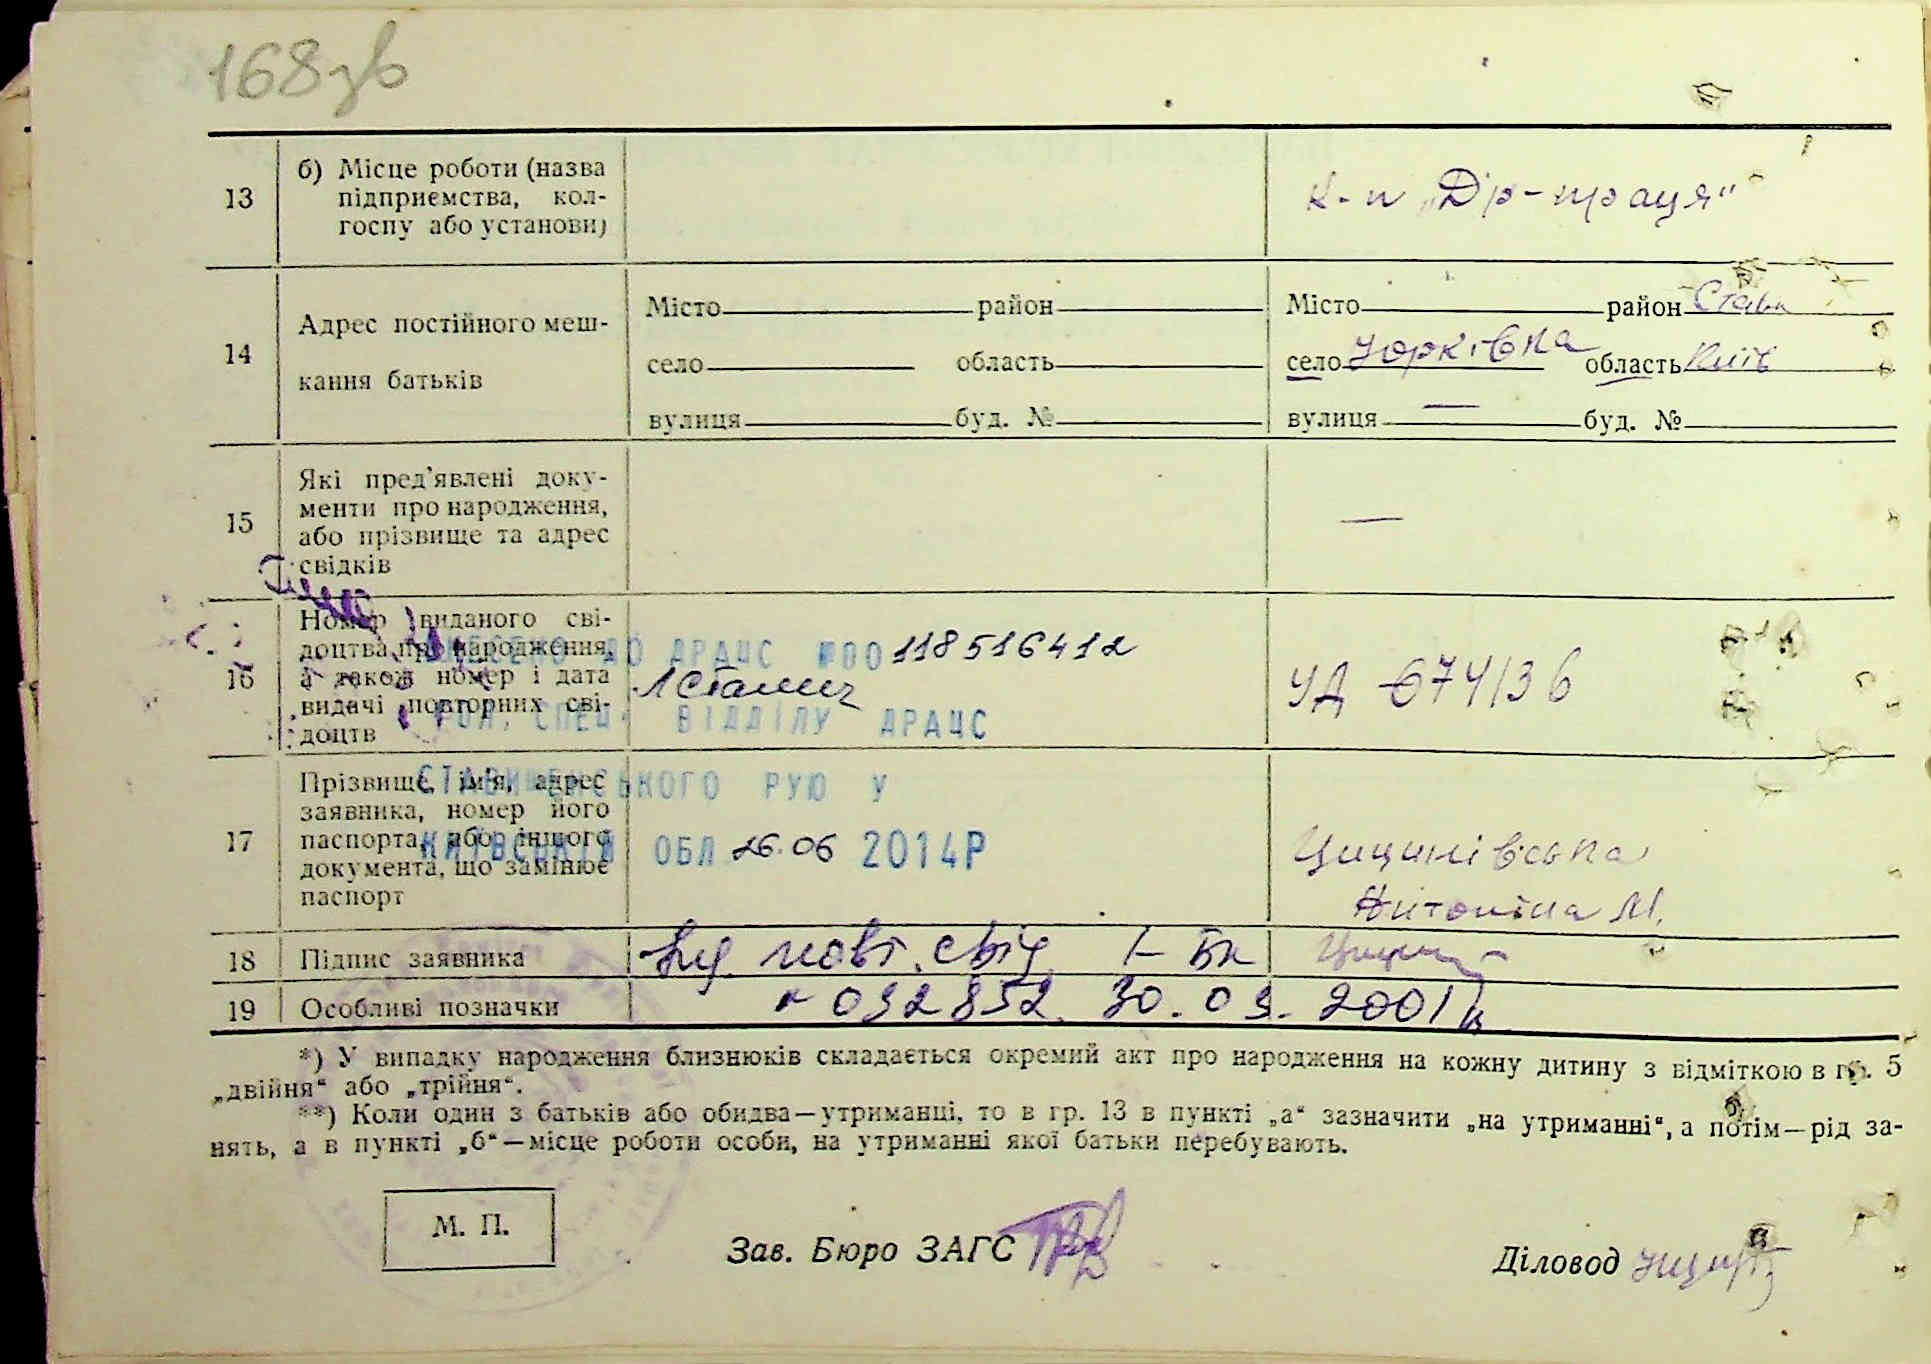 168зв
13
б) Місце роботи (назва
підприємства, кол-
госпу або установи)
к-п „Др-праця"
14
Адрес постійного меш-
кання батьків
Місто район
село область
вулиця буд. №
Місто район Став
село Юрківка область Київ
вулиця — буд. №
15
Які пред'явлені доку-
менти про народження,
або прізвище та адрес
свідків
—
16
Номер виданого сві-
доцтва про народження,
а також номер і дата
видачі повторних сві-
доцтв
ВНЕСЕНО ДО ДРАЦС №00118516412
ГОЛ. СПЕЦ. ВІДДІЛУ ДРАЦС
СТАВИЩЕНСЬКОГО РУЮ У
КИЇВСЬКІЙ ОБЛ 26.06 2014Р
УД 674136
17
Прізвище, ім'я, адрес
заявника, номер його
паспорта, або іншого
документа, що замінює
паспорт
Антоніна М.
18
Підпис заявника
свід. І-Бк
19
Особливі позначки
092852. 30.09. 2001
*) У випадку народження близнюків складається окремий акт про народження на кожну дитину з відміткою в гр. 5
„двійня“ або „трійня“.
**) Коли один з батьків або обидва—утриманці, то в гр. 13 в пункті „а“ зазначити „на утриманні“, а потім—рід за-
нять, а в пункті „б“—місце роботи особи, на утриманні якої батьки перебувають.
М. П.
Зав. Бюро ЗАГС
Діловод